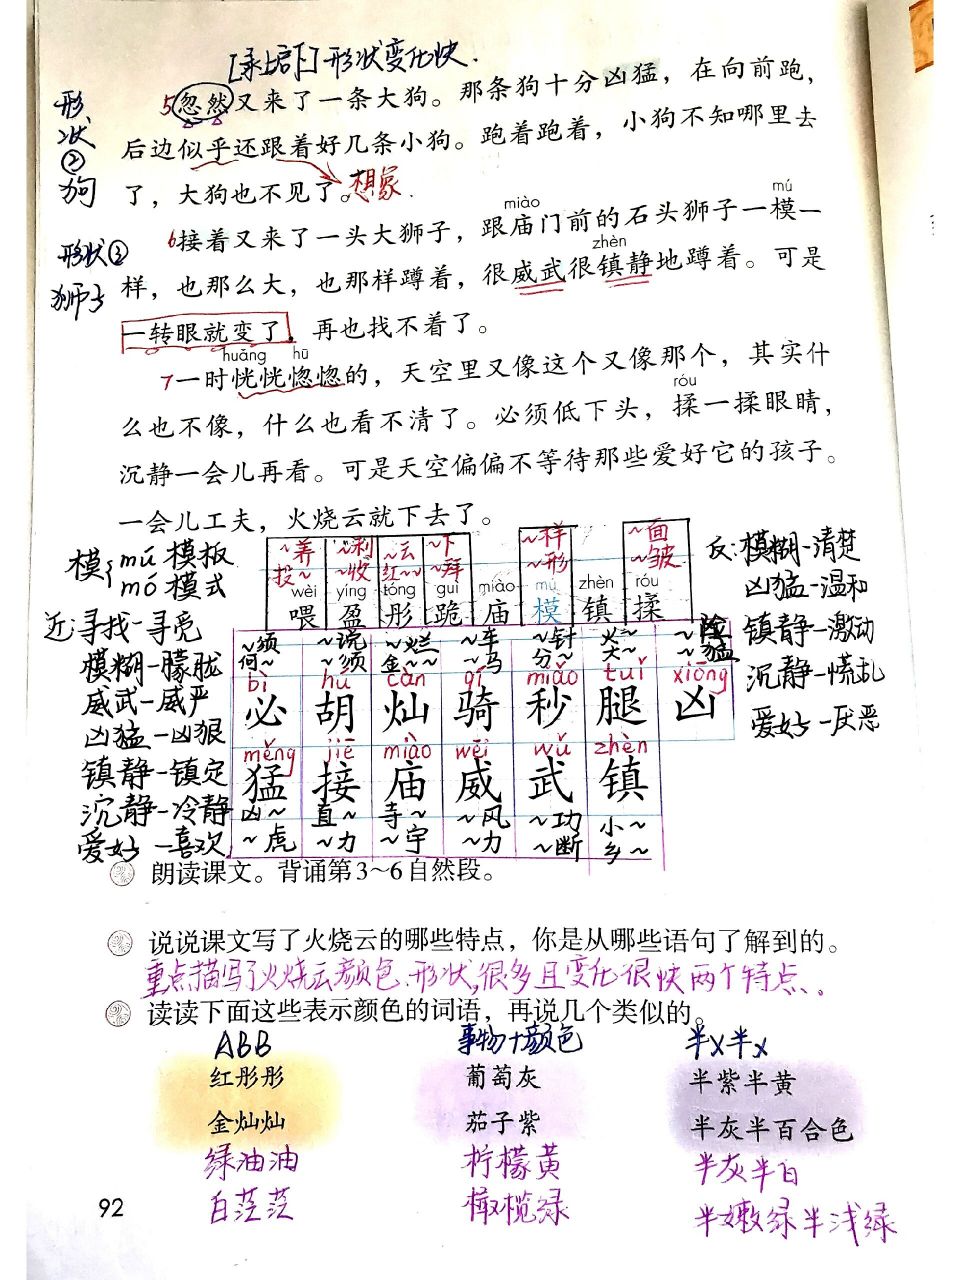 [承上启下]形状变化快.
形状②狗
5忽然又来了一条大狗。那条狗十分凶猛，在向前跑，
后边似乎还跟着好几条小狗。跑着跑着，小狗不知哪里去
了，大狗也不见了。想象.
miào mú
形状③狮子
6接着又来了一头大狮子，跟庙门前的石头狮子一模一
zhèn
样，也那么大，也那样蹲着，很威武很镇静地蹲着。可是
一转眼就变了，再也找不着了。
huǎng hū
7一时恍恍惚惚的，天空里又像这个又像那个，其实什
róu
么也不像，什么也看不清了。必须低下头，揉一揉眼睛，
沉静一会儿再看。可是天空偏偏不等待那些爱好它的孩子。
一会儿工夫，火烧云就下去了。
模{mú 模板
mó 模式
~养 ~利 ~云 ~下 ~样 ~面
投~ ~收 红~~ ~拜 ~形 ~皱
wèi yíng tóng guì miào mú zhèn róu
喂 盈 彤 跪 庙 模 镇 揉
反:模糊-清楚
凶猛-温和
镇静-激动
沉静-慌乱
爱好-厌恶
近:寻找-寻觅
模糊-朦胧
威武-威严
凶猛-凶狠
镇静-镇定
沉静-冷静
爱好-喜欢.
~须 ~说 ~烂 ~车 ~针 火~ ~险
何~ ~须 金~~ ~马 分~ 大~ ~猛
bì hú càn qí miǎo tuǐ xiōng
必 胡 灿 骑 秒 腿 凶
měng jiē miào wēi wǔ zhèn
猛 接 庙 威 武 镇
凶~ 直~ 寺~ ~风 ~功 小~
~虎 ~力 ~宇 ~力 ~断 乡~
朗读课文。背诵第3~6自然段。
说说课文写了火烧云的哪些特点，你是从哪些语句了解到的。
重点描写了火烧云颜色、形状,很多且变化很快两个特点.
读读下面这些表示颜色的词语，再说几个类似的。
ABB 事物+颜色 半x半x
红彤彤 葡萄灰 半紫半黄
金灿灿 茄子紫 半灰半百合色
绿油油 柠檬黄 半灰半白
白茫茫 橄榄绿 半嫩绿半浅绿
92